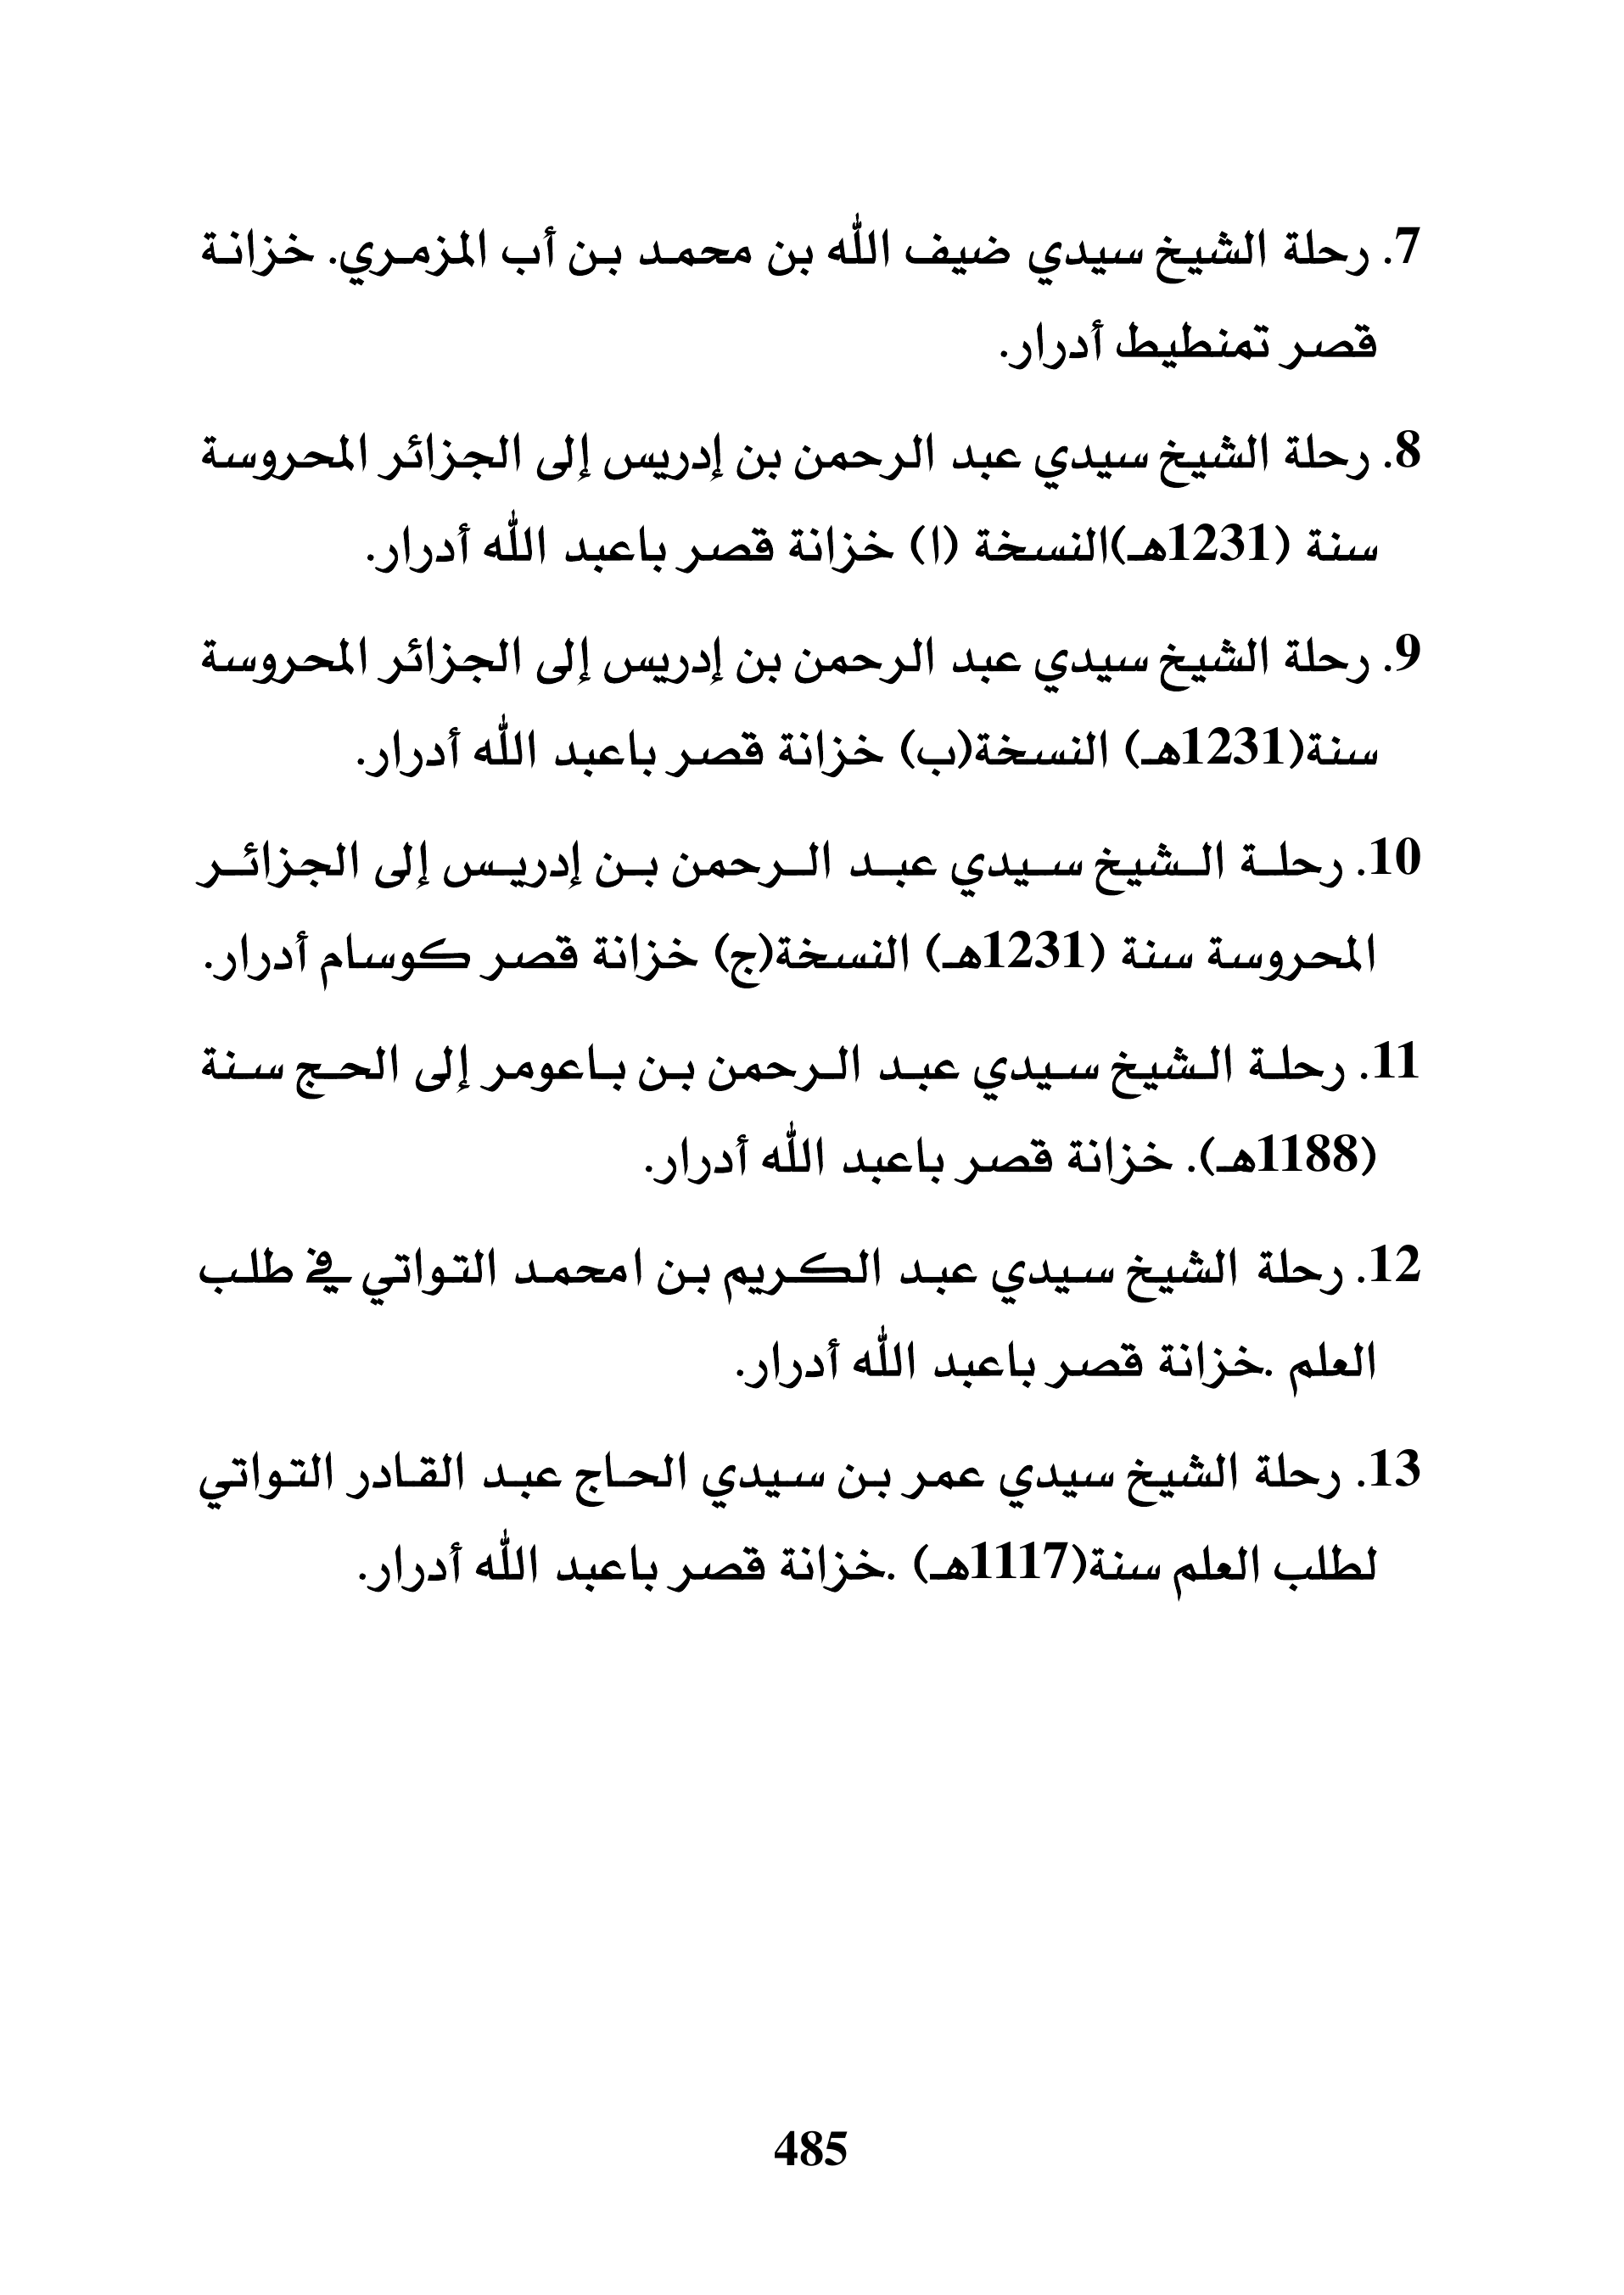 7. رحلة الشيخ سيدي ضيف الله بن محمد بن أب المزمري. خزانة
قصر تمنطيط أدرار.
8. رحلة الشيخ سيدي عبد الرحمن بن إدريس إلى الجزائر المحروسة
سنة (1231هـ)النسخة (ا) خزانة قصر باعبد الله أدرار.
9. رحلة الشيخ سيدي عبد الرحمن بن إدريس إلى الجزائر المحروسة
سنة(1231هـ) النسخة(ب) خزانة قصر باعبد الله أدرار.
10. رحلة الشيخ سيدي عبد الرحمن بن إدريس إلى الجزائر
المحروسة سنة (1231هـ) النسخة(ج) خزانة قصر كوسام أدرار.
11. رحلة الشيخ سيدي عبد الرحمن بن باعومر إلى الحج سنة
(1188هـ). خزانة قصر باعبد الله أدرار.
12. رحلة الشيخ سيدي عبد الكريم بن امحمد التواتي في طلب
العلم .خزانة قصر باعبد الله أدرار.
13. رحلة الشيخ سيدي عمر بن سيدي الحاج عبد القادر التواتي
لطلب العلم سنة(1117هـ) .خزانة قصر باعبد الله أدرار.
485